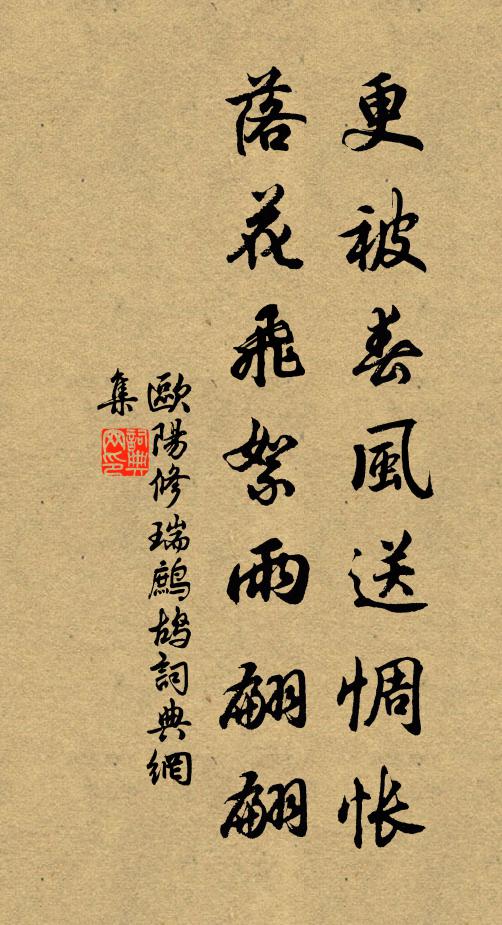 更被春風送惆悵
落花飛絮雨翩翩
歐陽修瑞鷓鴣詞典網
集
詞典
网印